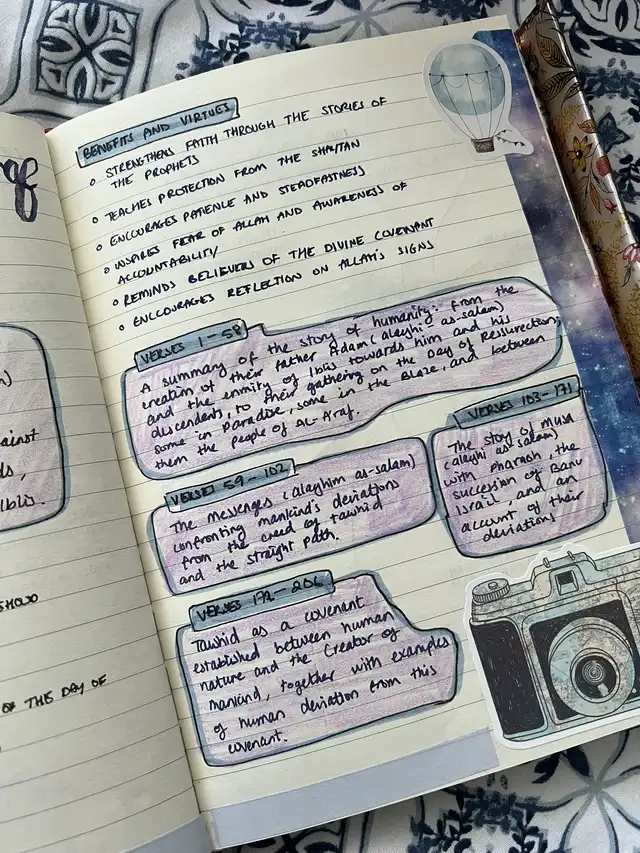 af
)
ainst
ds,
Iblis.
SHOW
OF THE DAY OF
BENEFITS AND VIRTUES
o STRENGTHENS FAITH THROUGH THE STORIES OF
THE PROPHETS
o TEACHES PROTECTION FROM THE SHAYTAN
o ENCOURAGES PATIENCE AND STEADFASTNESS
o INSPIRES FEAR OF ALLAH AND AWARENESS OF
ACCOUNTABILITY
o REMINDS BELIEVERS OF THE DIVINE COVENANT
o ENCCOURAGES REFLECTION ON ALLAH'S SIGNS
VERSES 1-58
A summary of the story of humanity: from the
creation of their father Adam (alayhi as-salam)
and the enmity of Iblis towards him and his
descendents, to their gathering on the Day of Ressurection;
some in Paradise, some in the Blaze, and between
them the people of Al-Araf.
VERSES 59-102
The messenges (alayhim as-salam)
confronting mankind's deviations
from the creed of tawhid
and the straight path.
VERSES 103-171
The story of Musa
(alayhi as-salam)
with Pharaoh, the
succession of Banu
Israil, and an
account of their
deviations
VERSES 172-206
Tawhid as a covenant
established between human
nature and the Creator of
mankind, together with examples
of human deviation from this
covenant.